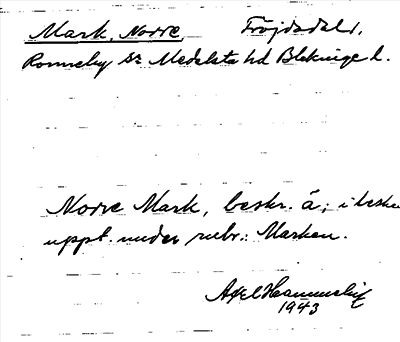 Mark, Norre, Fröjdadal,
Ronneby sn Medelsta hd Blekinge l.
Norre Mark, beskr. å; i beske
uppt. under rubr.: Marken.
Axel
1943